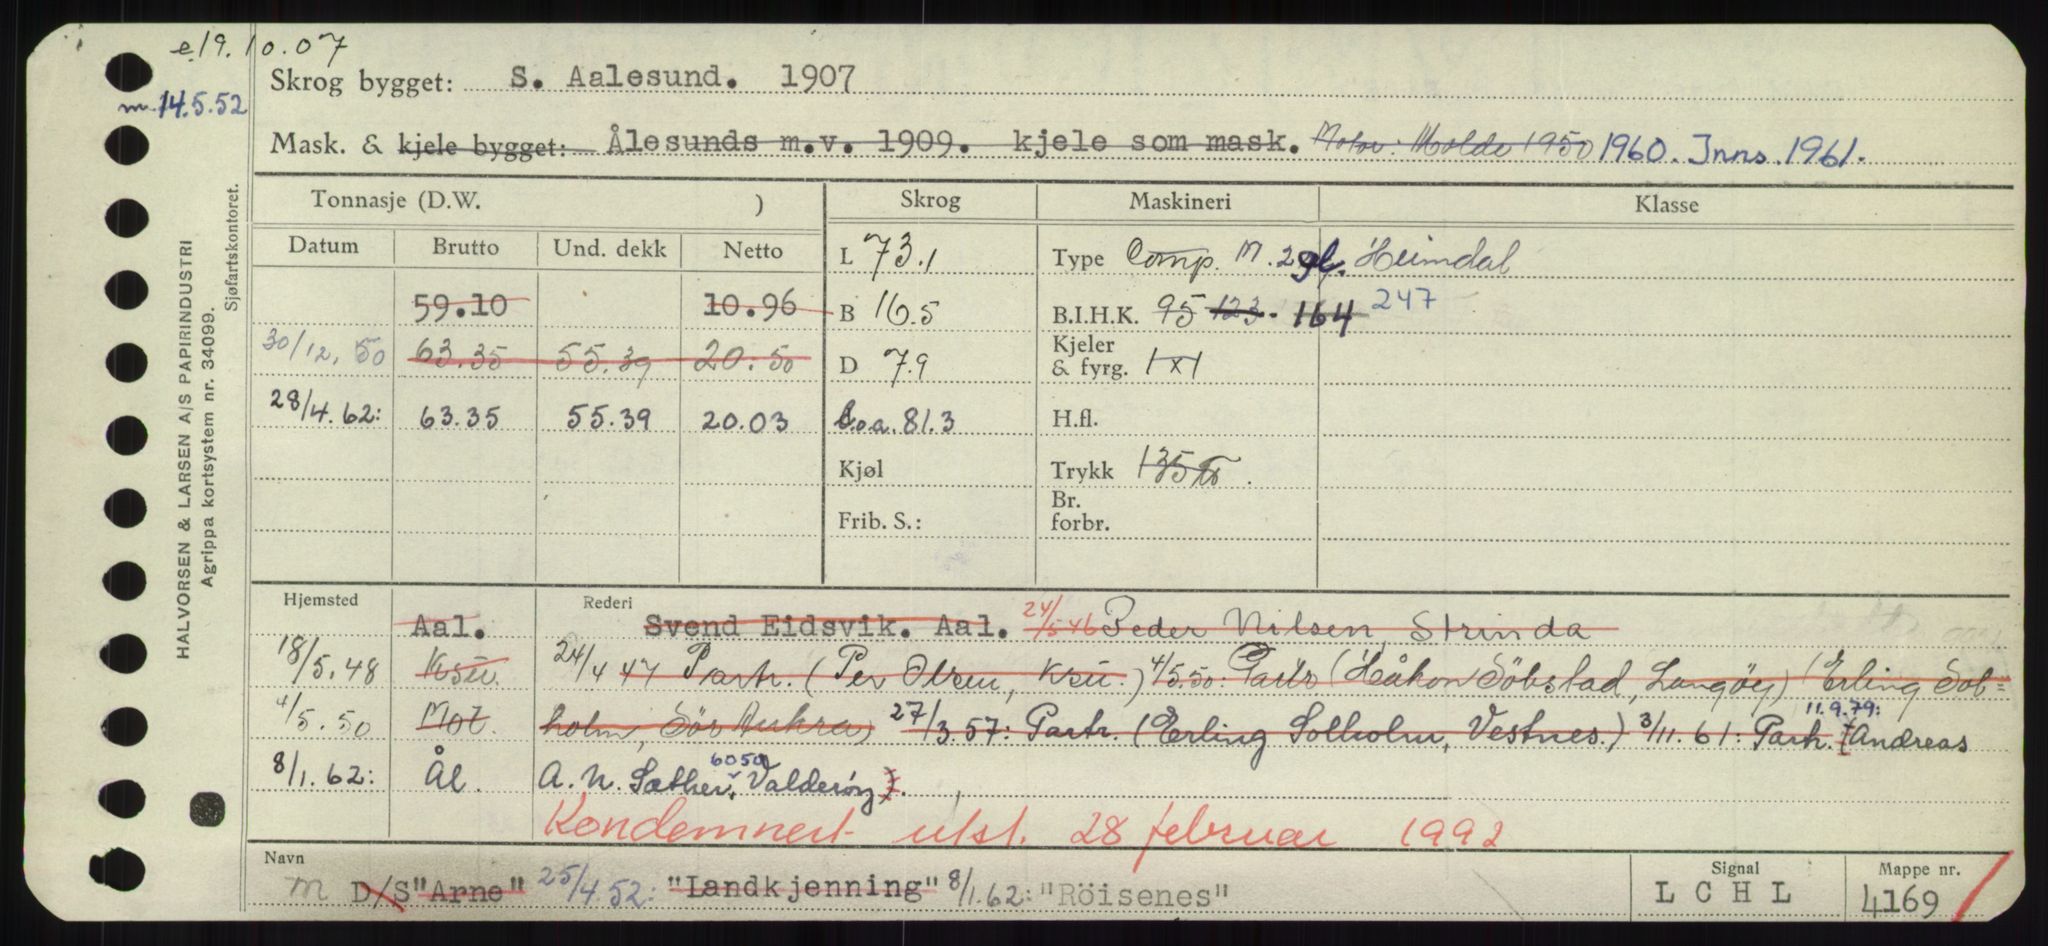 e 19.10.07
Skrog bygget: S. Aalesund. 1907
m. 14.5.52
Mask. & kjele bygget: Ålesunds m.v. 1909. kjele som mask. Motor: Molde 1950 1960. Inns. 1961.
HALVORSEN & LARSEN A/S PAPIRINDUSTRI
Agrippa kortsystem nr. 34099.
Sjøfartskontoret.
Tonnasje (D.W. ) Skrog Maskineri Klasse
Datum Brutto Und. dekk Netto
L 73.1 Type Comp. M. 2 syl. Heimdal
59.10 10.96 B 16.5 B.I.H.K. 95 123. 164 247
30/12.50 63.35 55.39 20.50 D 7.9 Kjeler & fyrg. 1x1
28/4.62: 63.35 55.39 20.03 L.o.a. 81.3 H.fl.
Kjøl Trykk 135
Frib. S.: Br. forbr.
Hjemsted Rederi
Aal. Svend Eidsvik. Aal. 24/5 46 Peder Nilsen, Strinda
18/5.48 Ksu. 24/4 47 Partr. (Per Olsen, Ksu.) 4/5.50: Partr (Håkon Söbstad, Langöy) (Erling Sol=
4/5.50 Mol. holm, Sör Aukra) 27/3.57: Partr. (Erling Solholm, Vestnes.) 3/11.61: Partr. 11.9.79: (Andreas
8/1.62: Ål. A. N. Sæther, 6050 Valderöy).
Kondemnert utst. 28 februar 1992
Navn Signal Mappe nr.
M D/S "Arne" 25/4.52: "Landkjenning" 8/1.62: "Röisenes" L C H L 4169